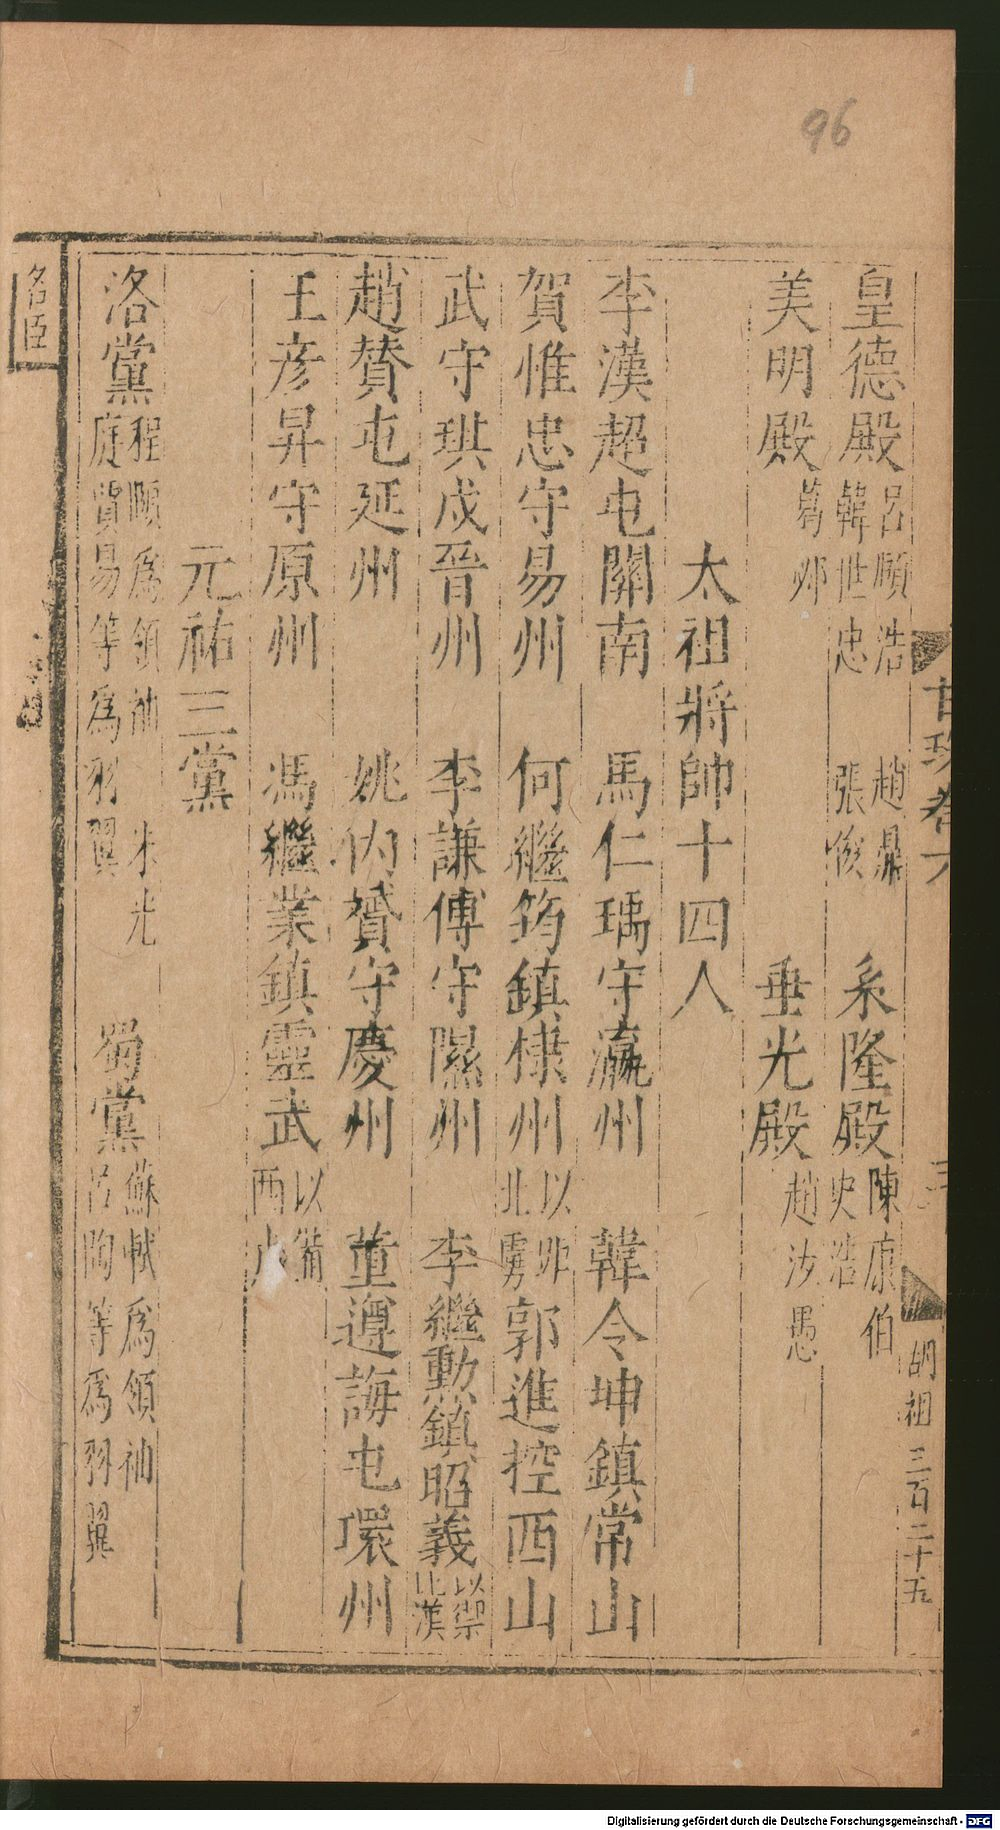 96
皇德殿 呂頤浩 韓世忠 趙鼎 張俊 系隆殿 陳康伯 史浩
美明殿 葛邲 垂光殿 趙汝愚
太祖將帥十四人
李漢超屯關南 馬仁瑀守瀛州 韓令坤鎮常山
賀惟忠守易州 何繼筠鎮棣州 以北虜 郭進控西山
武守琪戍晉州 李謙傅守隰州 李繼勳鎮昭義 以禦北漢
趙贊屯延州 姚內贇守慶州 董遵誨屯環州
王彥昇守原州 馮繼業鎮靈武 以備西
元祐三黨
洛黨 程頤為領袖 朱光庭賈易等為羽翼 蜀黨 蘇軾為領袖 呂陶等為羽翼
名臣
卷六
胡祖 三百二十五
Digitalisierung gefördert durch die Deutsche Forschungsgemeinschaft - DFG